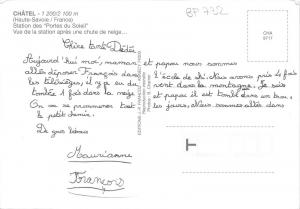 CHÂTEL - 1 200/2 100 m
(Haute-Savoie / France)
Station des "Portes du Soleil"
Vue de la station après une chute de neige...
BP 792
CHA
9717
Chère tante
Aujourd'hui moi, maman et papa nous sommes
allés déposer François dans l'école de ski. Nous avons pris 4 fois
les télésièges, il y en eu du vent dans la montagne. Je suis
tombée 1 fois dans la neige et papa il est tombé dans un trou.
On va se promener tout les jours. Nous sommes allés dans
le petit
De gros bisous
François